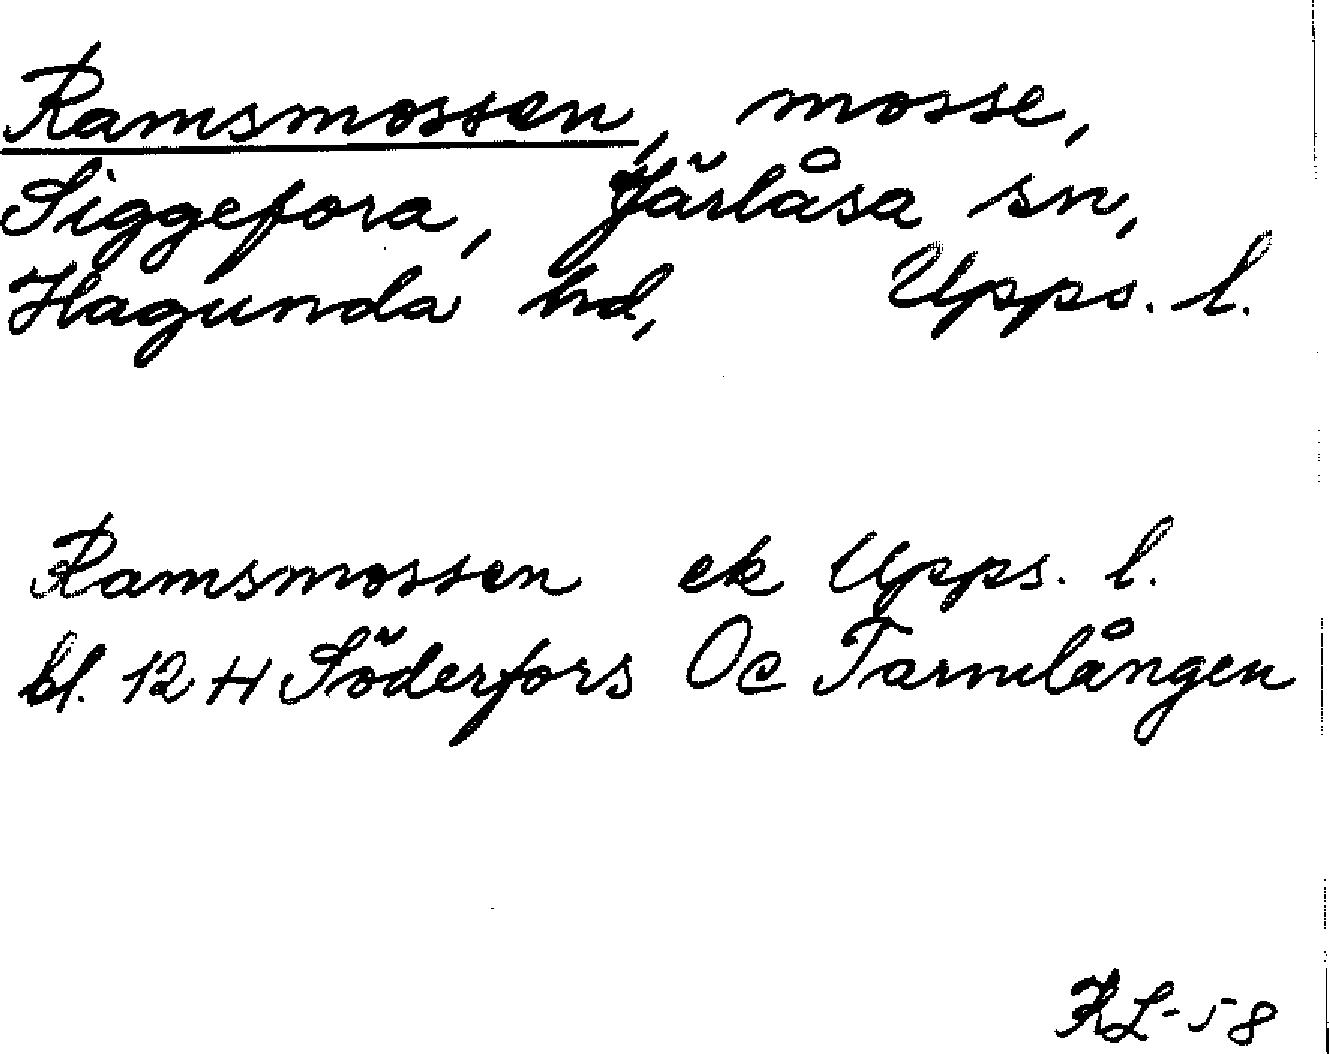 Ramsmossen, mosse,
Siggefora, Järlåsa sn,
Hagunda hd, Upps. l.
Ramsmossen ek Upps. l.
bl. 12 H Söderfors Oc Tarmlången
KL-58